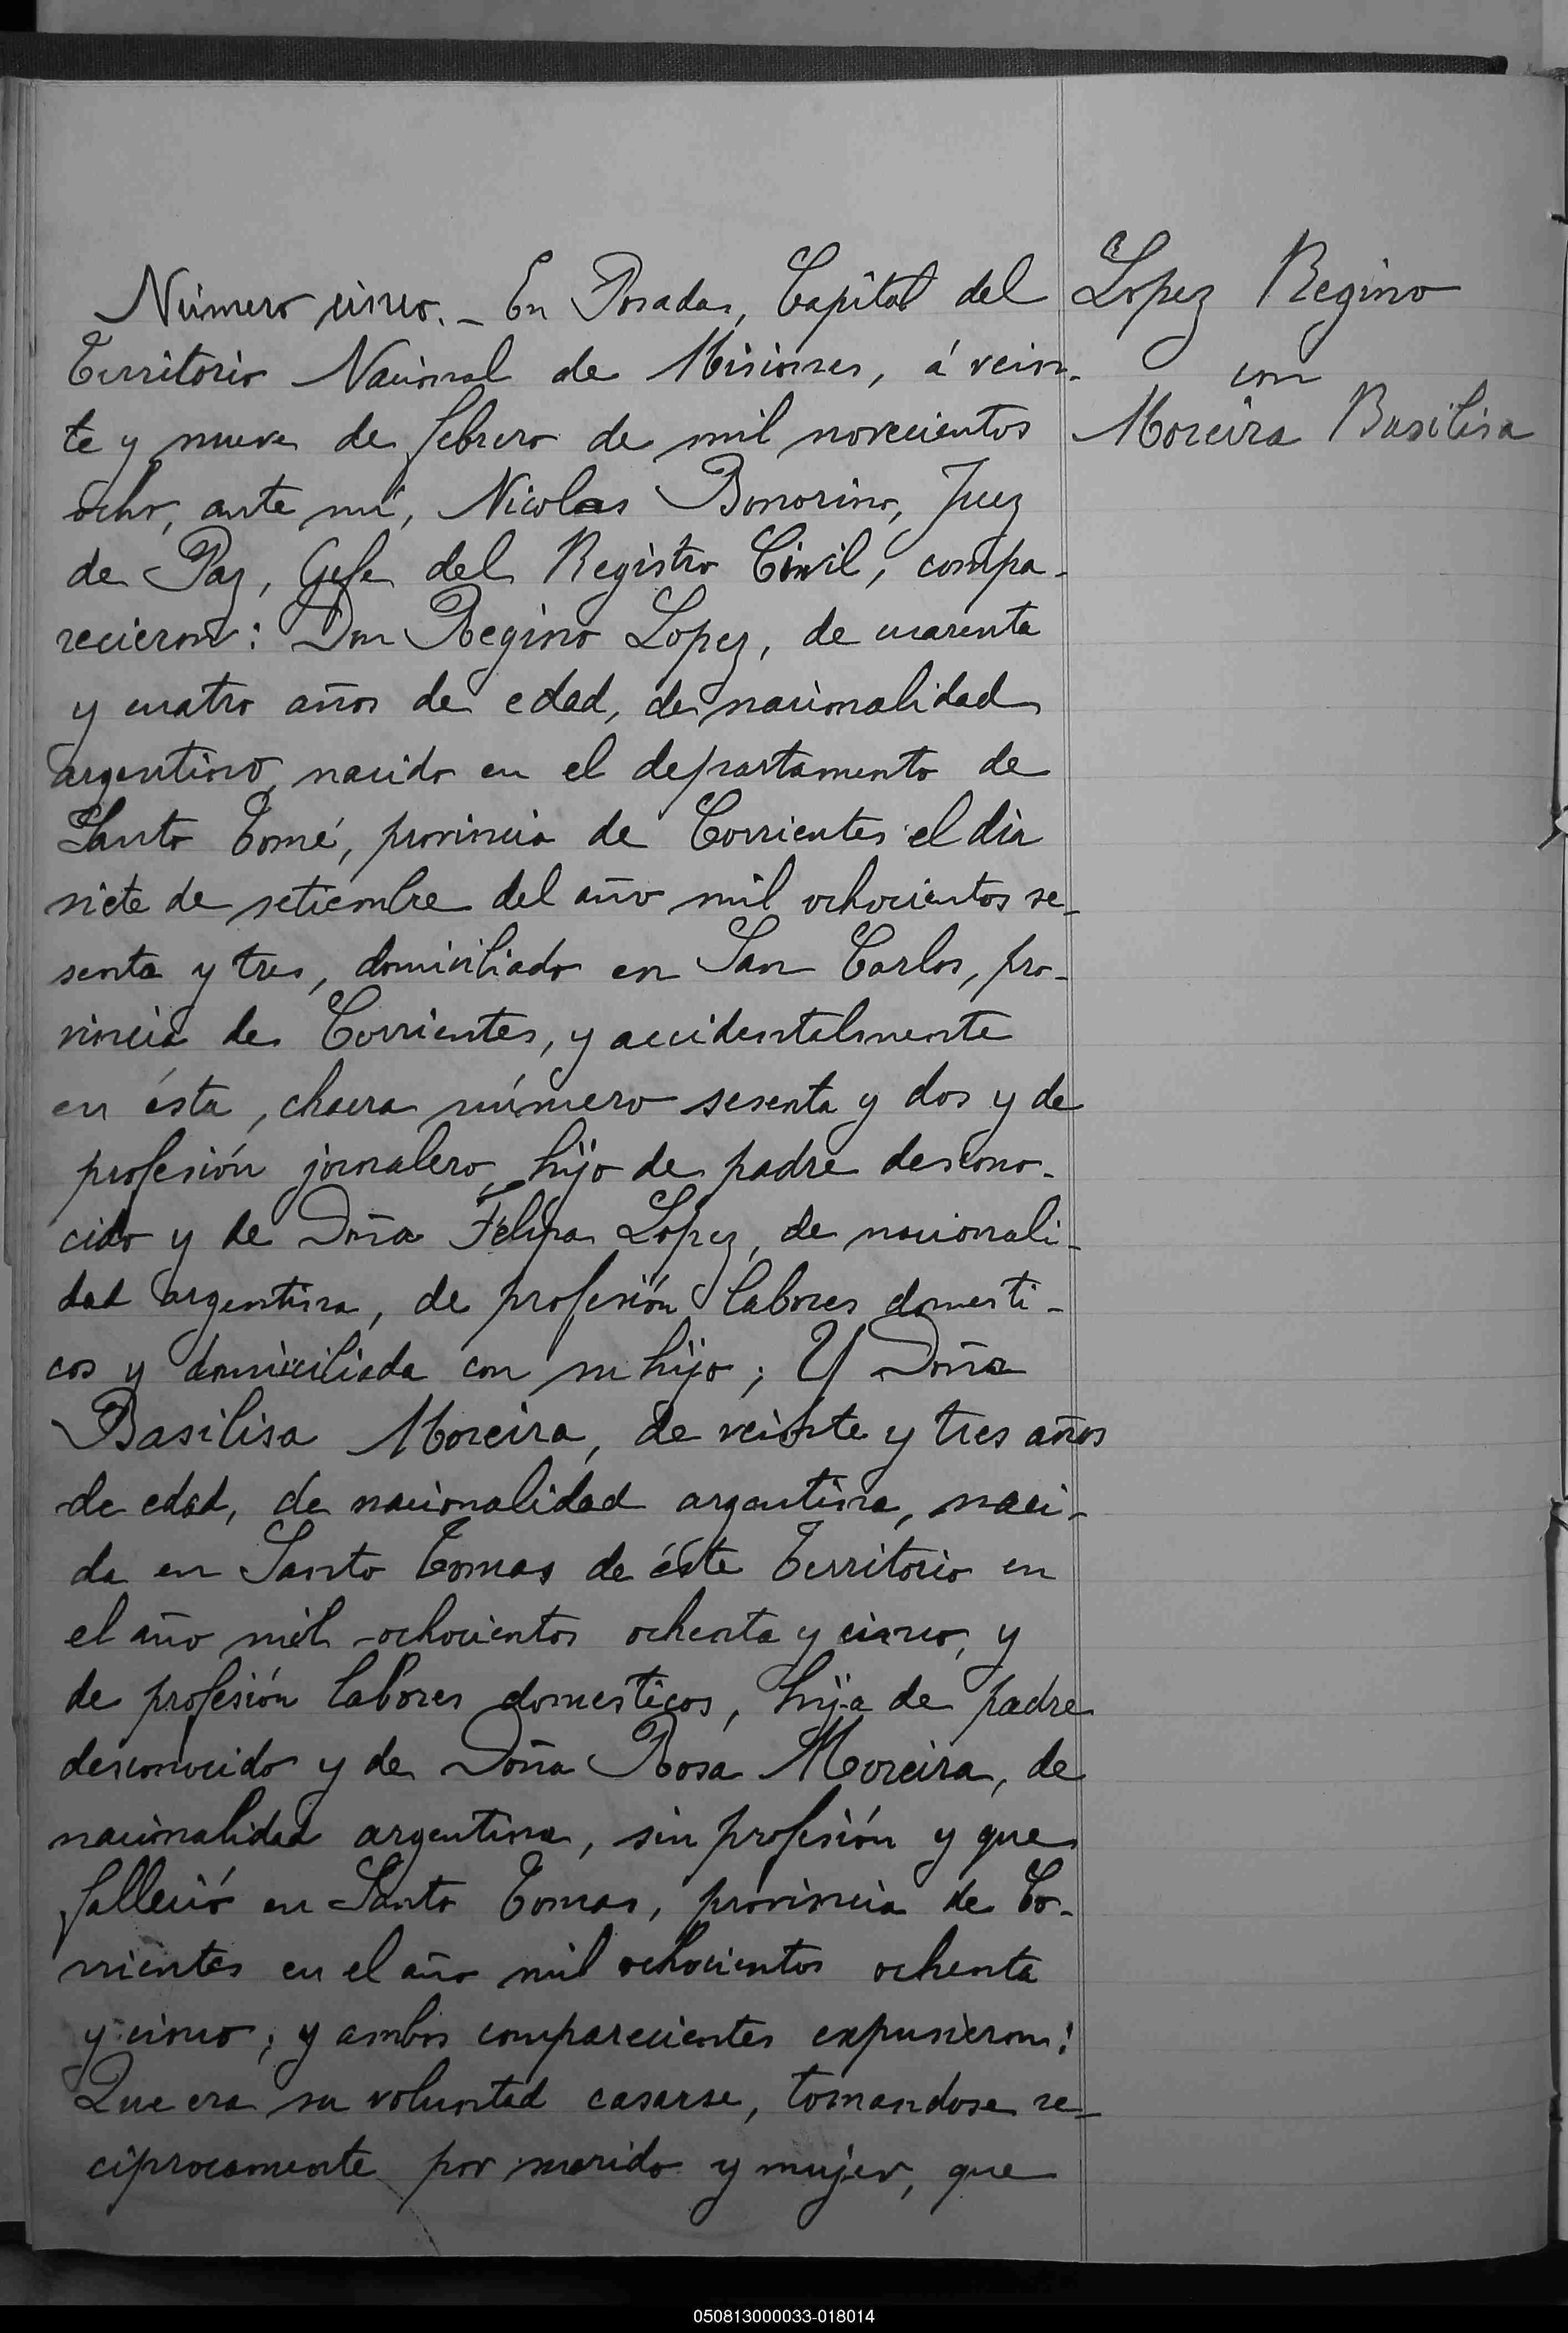 Lopez Regino
con
Moreira Basilisa
Número cinco. - En Posadas, Capital del
Territorio Nacional de Misiones, á vein-
te y nueve de febrero de mil novecientos
ocho, ante mi, Nicolas Bonorino, Juez
de Paz, Gefe del Registro Civil, compa-
recieron: Don Regino Lopez, de cuarenta
y cuatro años de edad, de nacionalidad
argentino, nacido en el departamento de
Santo Tomé, provincia de Corrientes el dia
siete de setiembre del año mil ochocientos se-
senta y tres, domiciliado en San Carlos, pro-
vincia de Corrientes, y accidentalmente
en ésta, chacra número sesenta y dos y de
profesión jornalero, hijo de padre descono-
cido y de Doña Felipa Lopez, de nacionali-
dad argentina, de profesión labores domesti-
cos y domiciliada con su hijo; Y Doña
Basilisa Moreira, de veinte y tres años
de edad, de nacionalidad argentina, naci-
da en Santo Tomas de éste Territorio en
el año mil ochocientos ochenta y cinco, y
de profesión labores domesticos, hija de padre
desconocido y de Doña Rosa Moreira, de
nacionalidad argentina, sin profesión y que
falleció en Santo Tomas, provincia de Co-
rrientes en el año mil ochocientos ochenta
y cinco; y ambos comparecientes expusieron:
Que era su voluntad casarse, tomandose re-
ciprocamente por marido y mujer, que
050813000033-018014